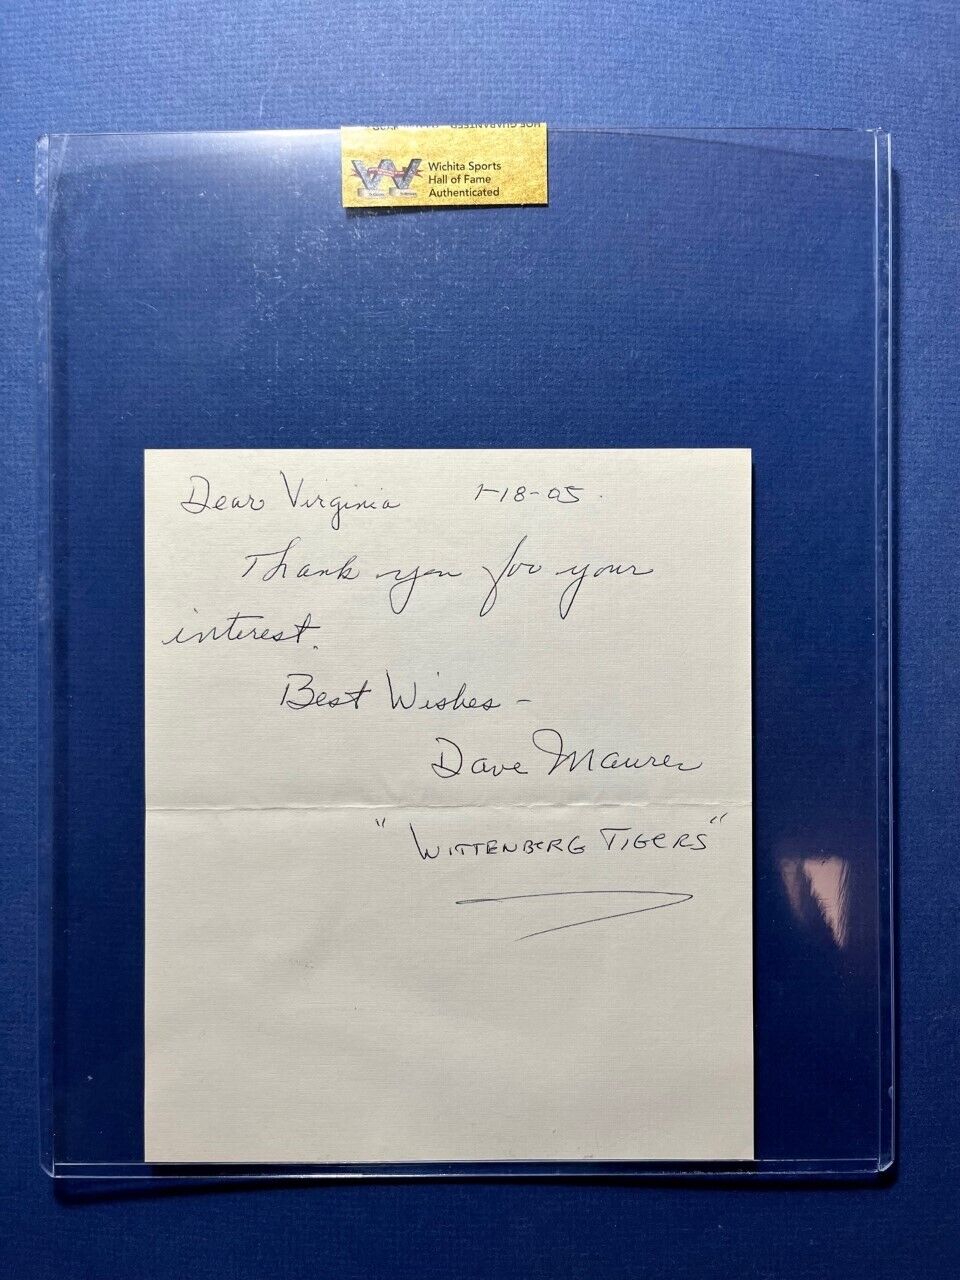 Wichita Sports
Hall of Fame
Authenticated
Dear Virginia 1-18-05
Thank you for your
interest.
Best Wishes -
Dave Maurer
"WITTENBERG TIGERS"